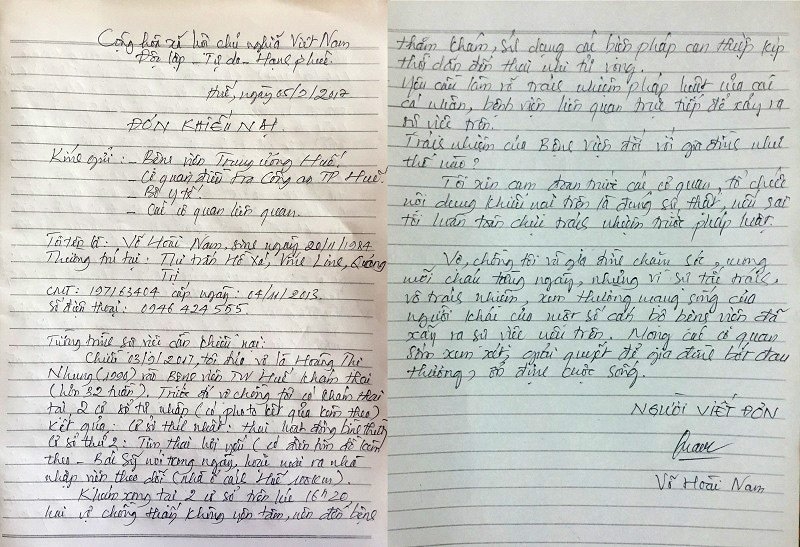 Cộng hòa xã hội chủ nghĩa Việt Nam
Độc lập - Tự do - Hạnh phúc.
Huế, ngày 05/9/2017
ĐƠN KHIẾU NẠI.
Kính gửi: - Bệnh viện Trung ương Huế.
- Cơ quan điều tra Công an TP Huế.
- Bộ y tế.
- Các cơ quan liên quan.
Tôi tên là: Võ Hoài Nam, sinh ngày 20/11/1984
Thường trú tại: Thị trấn Hồ Xá, Vĩnh Linh, Quảng
Trị
CMT: 197163404 cấp ngày: 04/11/2013.
Số điện thoại: 0946 424 555
Tường trình sự việc cần khiếu nại:
Chiều 03/9/2017, tôi đưa vợ là Hoàng Thị
Nhung (1990) vào Bệnh viện TW Huế khám thai
(hơn 32 tuần). Trước đó vợ chồng tôi có khám thai
tại 2 cơ sở tư nhân (có photo kết quả kèm theo)
Kết quả: Cơ sở thứ nhất: thai hoạt động bình thường
Cơ sở thứ 2: Tim thai hơi yếu (có
theo - Bác sỹ nói trong ngày, hoặc ngày ra nhà
nhập viện theo dõi (nhà ở cách Huế 100km).
Khám xong tại 2 cơ sở trên lúc 16h20,
hai vợ chồng thấy không yên tâm, nên đến bệnh
thăm khám, sử dụng các biện pháp can thiệp kịp
thời dẫn đến thai nhi tử vong.
Yêu cầu làm rõ trách nhiệm pháp luật của các
cá nhân, bệnh viện liên quan trực tiếp để xảy ra
sự việc trên.
Trách nhiệm của Bệnh viện đối với gia đình như
thế nào?
Tôi xin cam đoan trước các cơ quan, tổ chức
nội dung khiếu nại trên là đúng sự thật, nếu sai
tôi hoàn toàn chịu trách nhiệm trước pháp luật.
Vợ, chồng tôi và gia đình chăm sóc, mong
mỏi cháu từng ngày, nhưng vì sự tắc trách,
vô trách nhiệm, xem thường mạng sống của
người khác của một số cán bộ bệnh viện đã
xảy ra sự việc nêu trên. Mong các cơ quan
sớm xem xét, giải quyết để gia đình bớt đau
thương, ổn định cuộc sống.
NGƯỜI VIẾT ĐƠN
Võ Hoài Nam